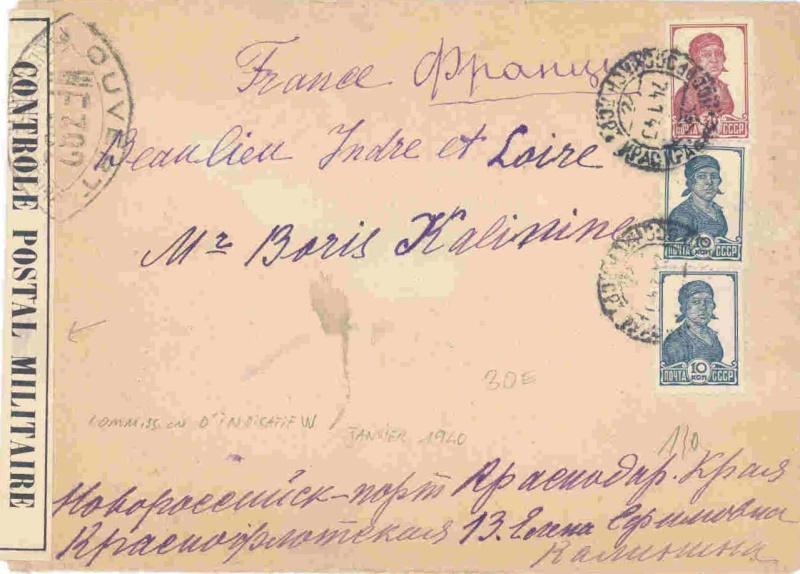 CONTROLE POSTAL MILITAIRE
OUVERT
France Франция
Beaulieu Indre et Loire
Mr Boris Kalinine
ПОЧТА СССР
10 КОП
ПОЧТА СССР
10 КОП
ПОЧТА СССР
30E
COMMISSION D'INDICATIF W
JANVIER 1940
Новороссийск-порт Краснодар. Края
Краснофлотская 13. Елена Ефимовна
Калинина